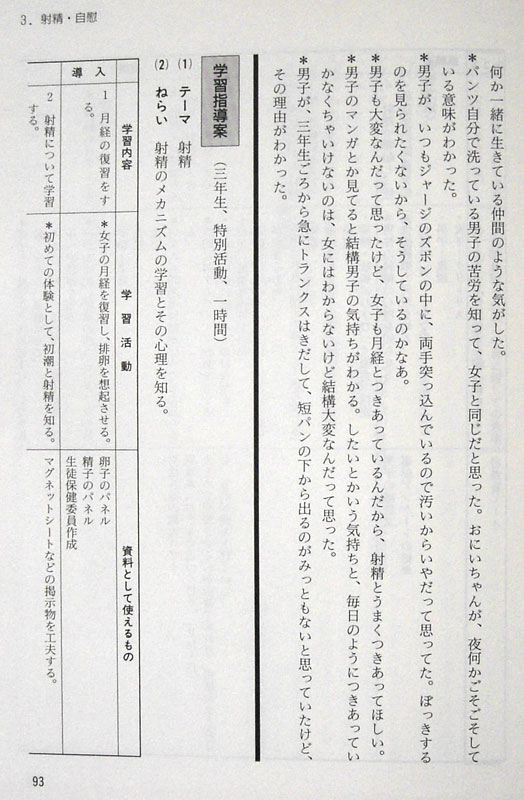 3．射精・自慰
何か一緒に生きている仲間のような気がした。
＊パンツ自分で洗っている男子の苦労を知って、女子と同じだと思った。おにいちゃんが、夜何かごそごそして
いる意味がわかった。
＊男子が、いつもジャージのズボンの中に、両手突っ込んでいるので汚いからいやだって思ってた。ぼっきする
のを見られたくないから、そうしているのかなあ。
＊男子も大変なんだって思ったけど、女子も月経とつきあっているんだから、射精とうまくつきあってほしい。
＊男子のマンガとか見てると結構男子の気持ちがわかる。したいとかいう気持ちと、毎日のようにつきあってい
かなくちゃいけないのは、女にはわからないけど結構大変なんだって思った。
＊男子が、三年生ごろから急にトランクスはきだして、短パンの下から出るのがみっともないと思っていたけど、
その理由がわかった。
学習指導案　（三年生、特別活動、一時間）
(1)　テーマ　射精
(2)　ねらい　射精のメカニズムの学習とその心理を知る。
学習内容　学習活動　資料として使えるもの
導入
1　月経の復習をす
る。
＊女子の月経を復習し、排卵を想起させる。
卵子のパネル
精子のパネル
生徒保健委員作成
2　射精について学習
する。
＊初めての体験として、初潮と射精を知る。
マグネットシートなどの掲示物を工夫する。
93